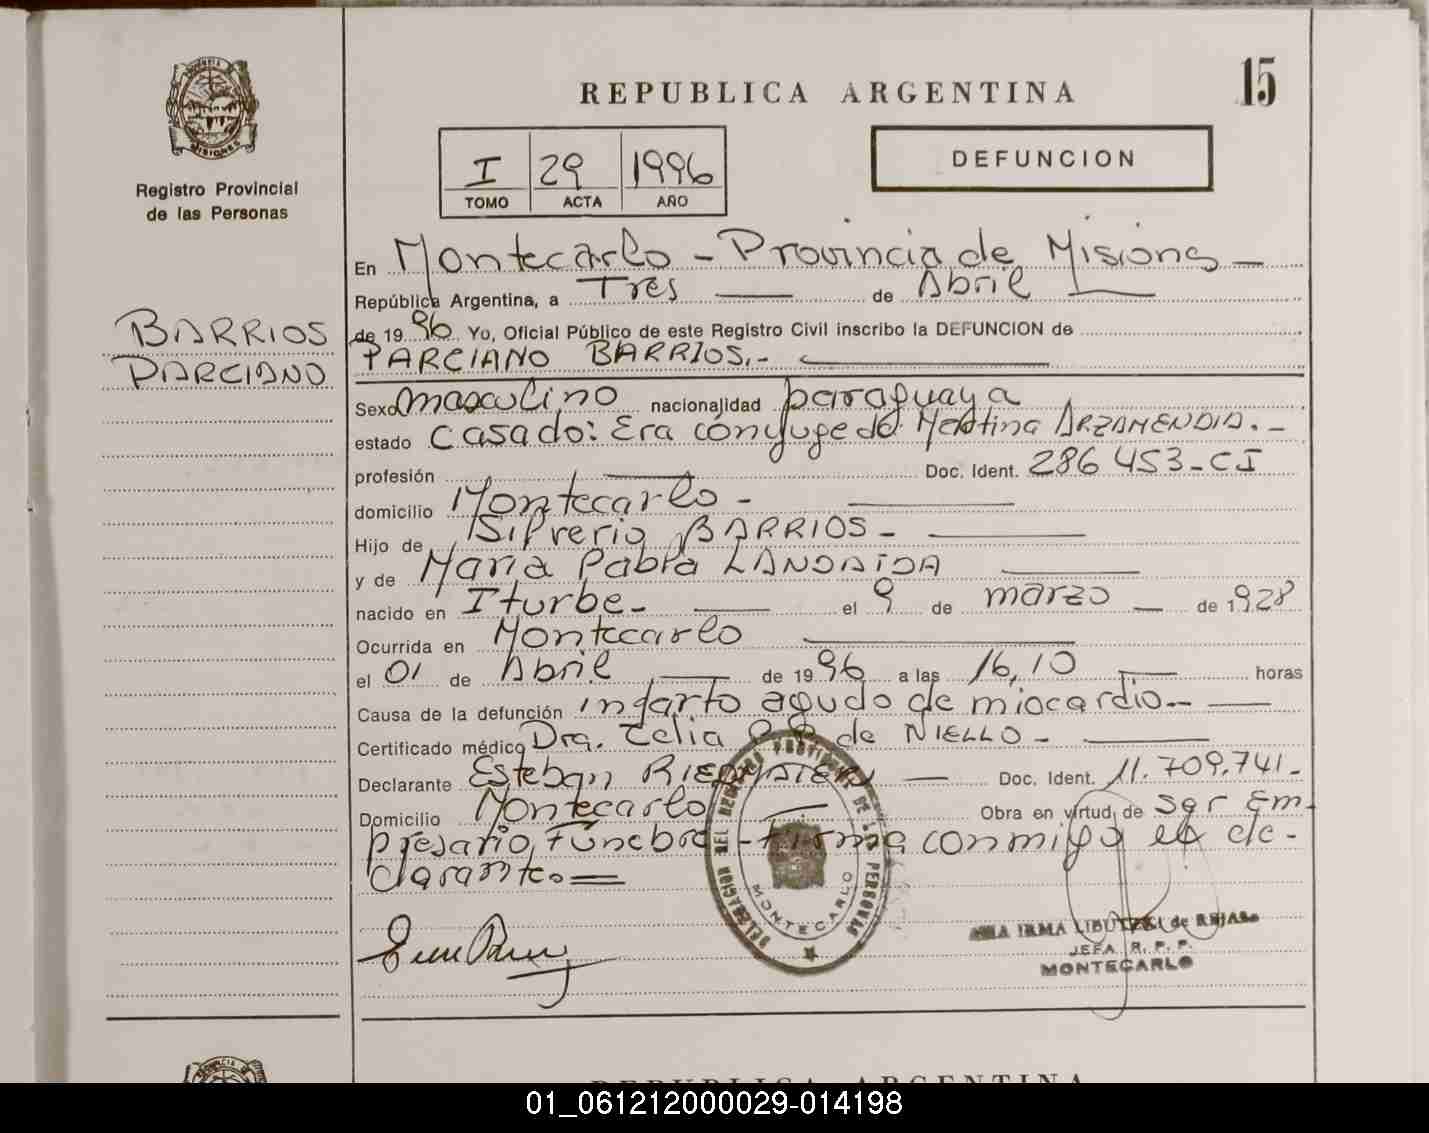 15
REPUBLICA ARGENTINA
MISIONES
Registro Provincial
de las Personas
I 29 1996
TOMO ACTA AÑO
DEFUNCION
BARRIOS
PARCIANO
En Montecarlo - Provincia de Misiones -
República Argentina, a Tres de Abril
de 1996 Yo, Oficial Público de este Registro Civil inscribo la DEFUNCION de
PARCIANO BARRIOS.-
Sexo masculino nacionalidad paraguaya
estado casado: Era cónyuge de Martina ARZAMENDIA.-
profesión Doc. Ident. 286453-CI
domicilio Montecarlo -
Hijo de Silverio BARRIOS -
y de Maria Pabla LANDAIDA
nacido en Iturbe - el 9 de marzo - de 1928
Ocurrida en Montecarlo
el 01 de Abril de 1996 a las 16,10 horas
Causa de la defunción infarto agudo de miocardio -
Certificado médico Dra. Celia de NIELLO -
Declarante Esteban Doc. Ident. 11.709.741-
Domicilio Montecarlo Obra en virtud de ser Em-
presario Fúnebre - Firma conmigo el de-
clarante.=
DELEGACION DEL REGISTRO PROVINCIAL DE LAS PERSONAS
MONTECARLO
IRMA de ROJAS
JEFA R. P. P.
MONTECARLO
REPUBLICA ARGENTINA
01_061212000029-014198